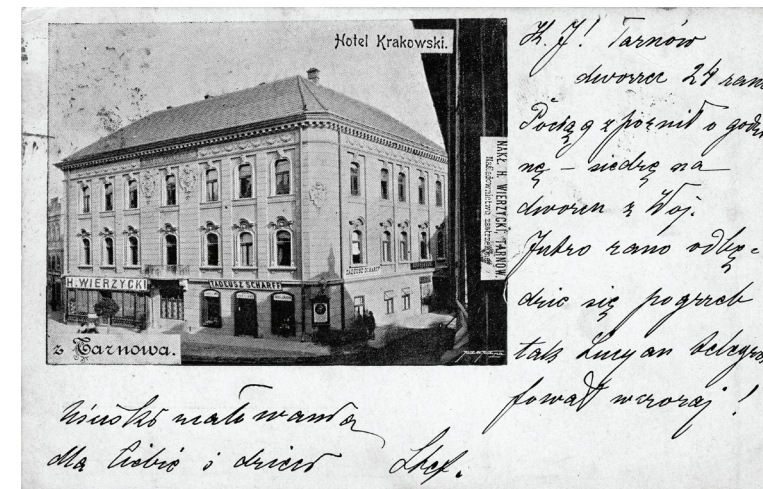 Hotel Krakowski.
H. WIERZYCKI
TADEUSZ SCHARFF
TADEUSZ SCHARFF
z Tarnowa.
NAKŁ. H. WIERZYCKI, TARNÓW.
K. J! Tarnów
dworzec 24 rano
Pociąg spóźnił o godzi
nę – siedzę na
dworcu z Wój.
Jutro rano odbę-
dzie się pogrzeb
tak Lucyan telegra
fował wczoraj!
dla Ciebie i dzieci